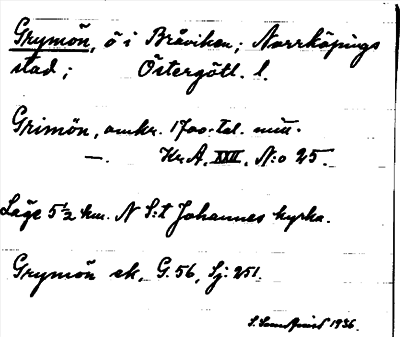 Grymön, ö i Bråviken; Norrköpings
stad; Östergötl. l.
Grimön, omkr. 1700-tal. mitt.
—. Kr. A. XXII, N:o 25.
Läge 5 1/2 km. N S:t Johannes kyrka.
Grymön ek, G. 56, Sj: 251.
S. 1936.